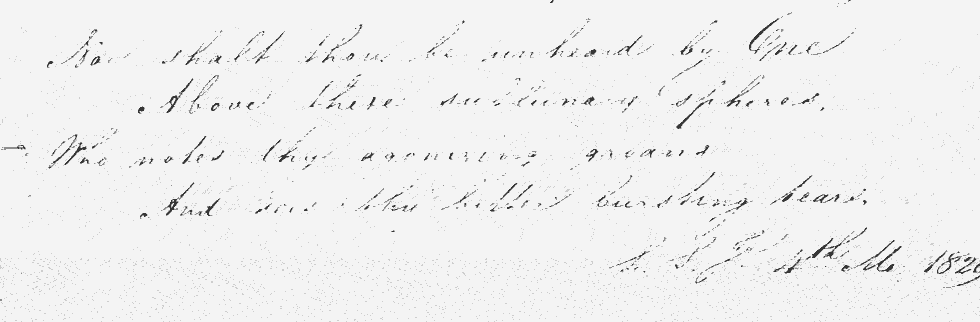 Nor shalt thou be unheard by One
Above these sublunary spheres,
Who notes thy agonizing groans
And sees thy bitter bursting tears.
4th Mo. 182